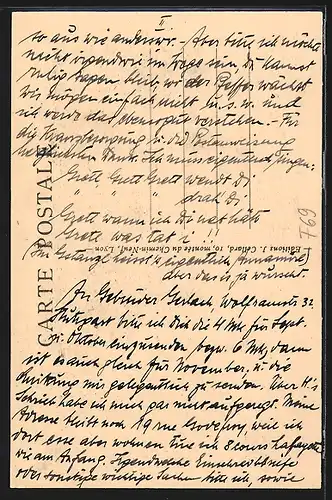 II
so aus wie anderswo. – Aber bitte, ich möchte
nicht irgendwie im Wege sein. Du kannst
ruhig sagen bleib, wo der Pfeffer wächst
wir mögen einfach nicht u.s.w. und
ich werde das ebensogut verstehen. – Für
die und die Postanweisung
herzlichsten Dank. Ich muss eigentlich singen:
Grett Grett Grett wendt Di
" " " drah Di
Grett wann ich Di net hätt
Grete was tät i !!
(Im heisst's eigentlich Annamirl)
aber das is ja wurscht.
An Gebrüder Gerlach Wolframstr 32
Stuttgart bitte ich Dich die 4 Mk für Sept.
u. Oktober einzusenden bezw. 6 Mk, dann
ist es auch gleich für November, u. die
Quittung mir gelegentlich zu senden. Über H's
habe ich mich gar nicht aufgeregt. Meine
Adresse bleibt noch 19 rue Godefroy, weil ich
dort esse aber wohnen tue ich 8 cours Lafayette
wie am Anfang. Irgendwelche Einschreibbriefe
oder sonstige wichtige Sachen bitte ich, sowie
CARTE POSTALE
Editions J. Cellard, 10, montée du Chemin-Neuf, Lyon
T69